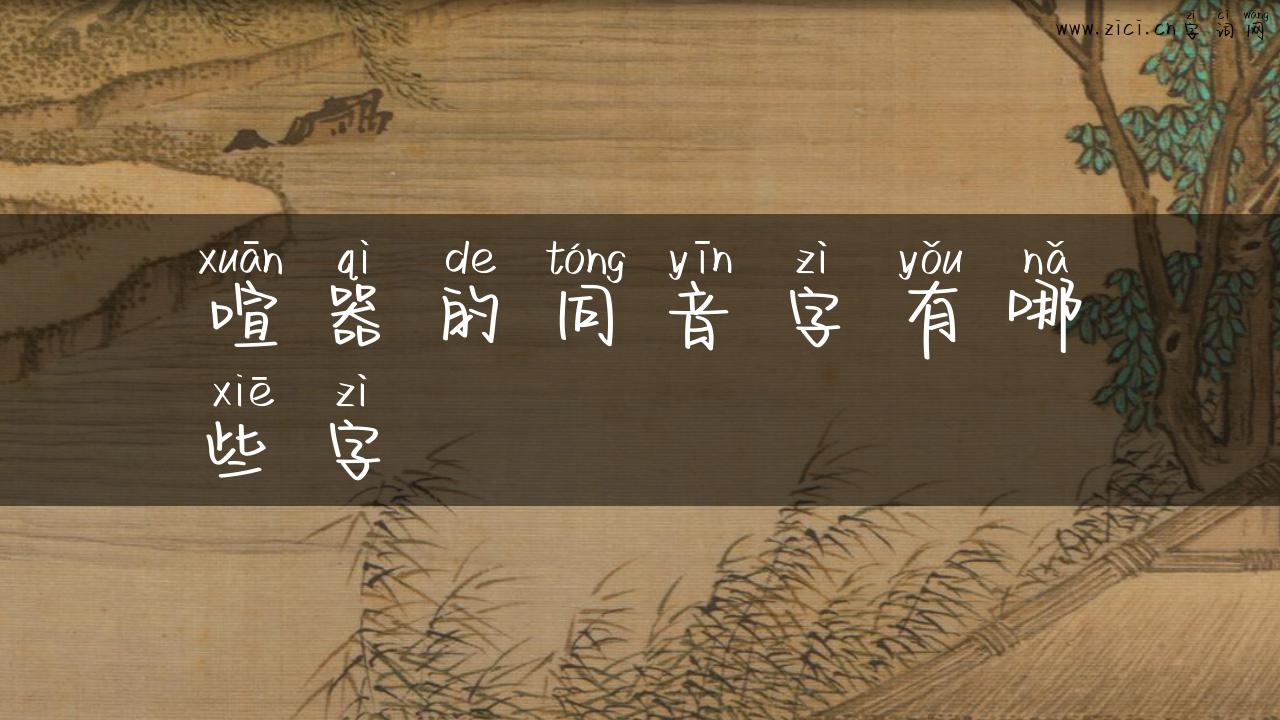 zì cí wǎng
www.zici.cn字词网
xuān qì de tóng yīn zì yǒu nǎ
喧器的同音字有哪
xiē zì
些字